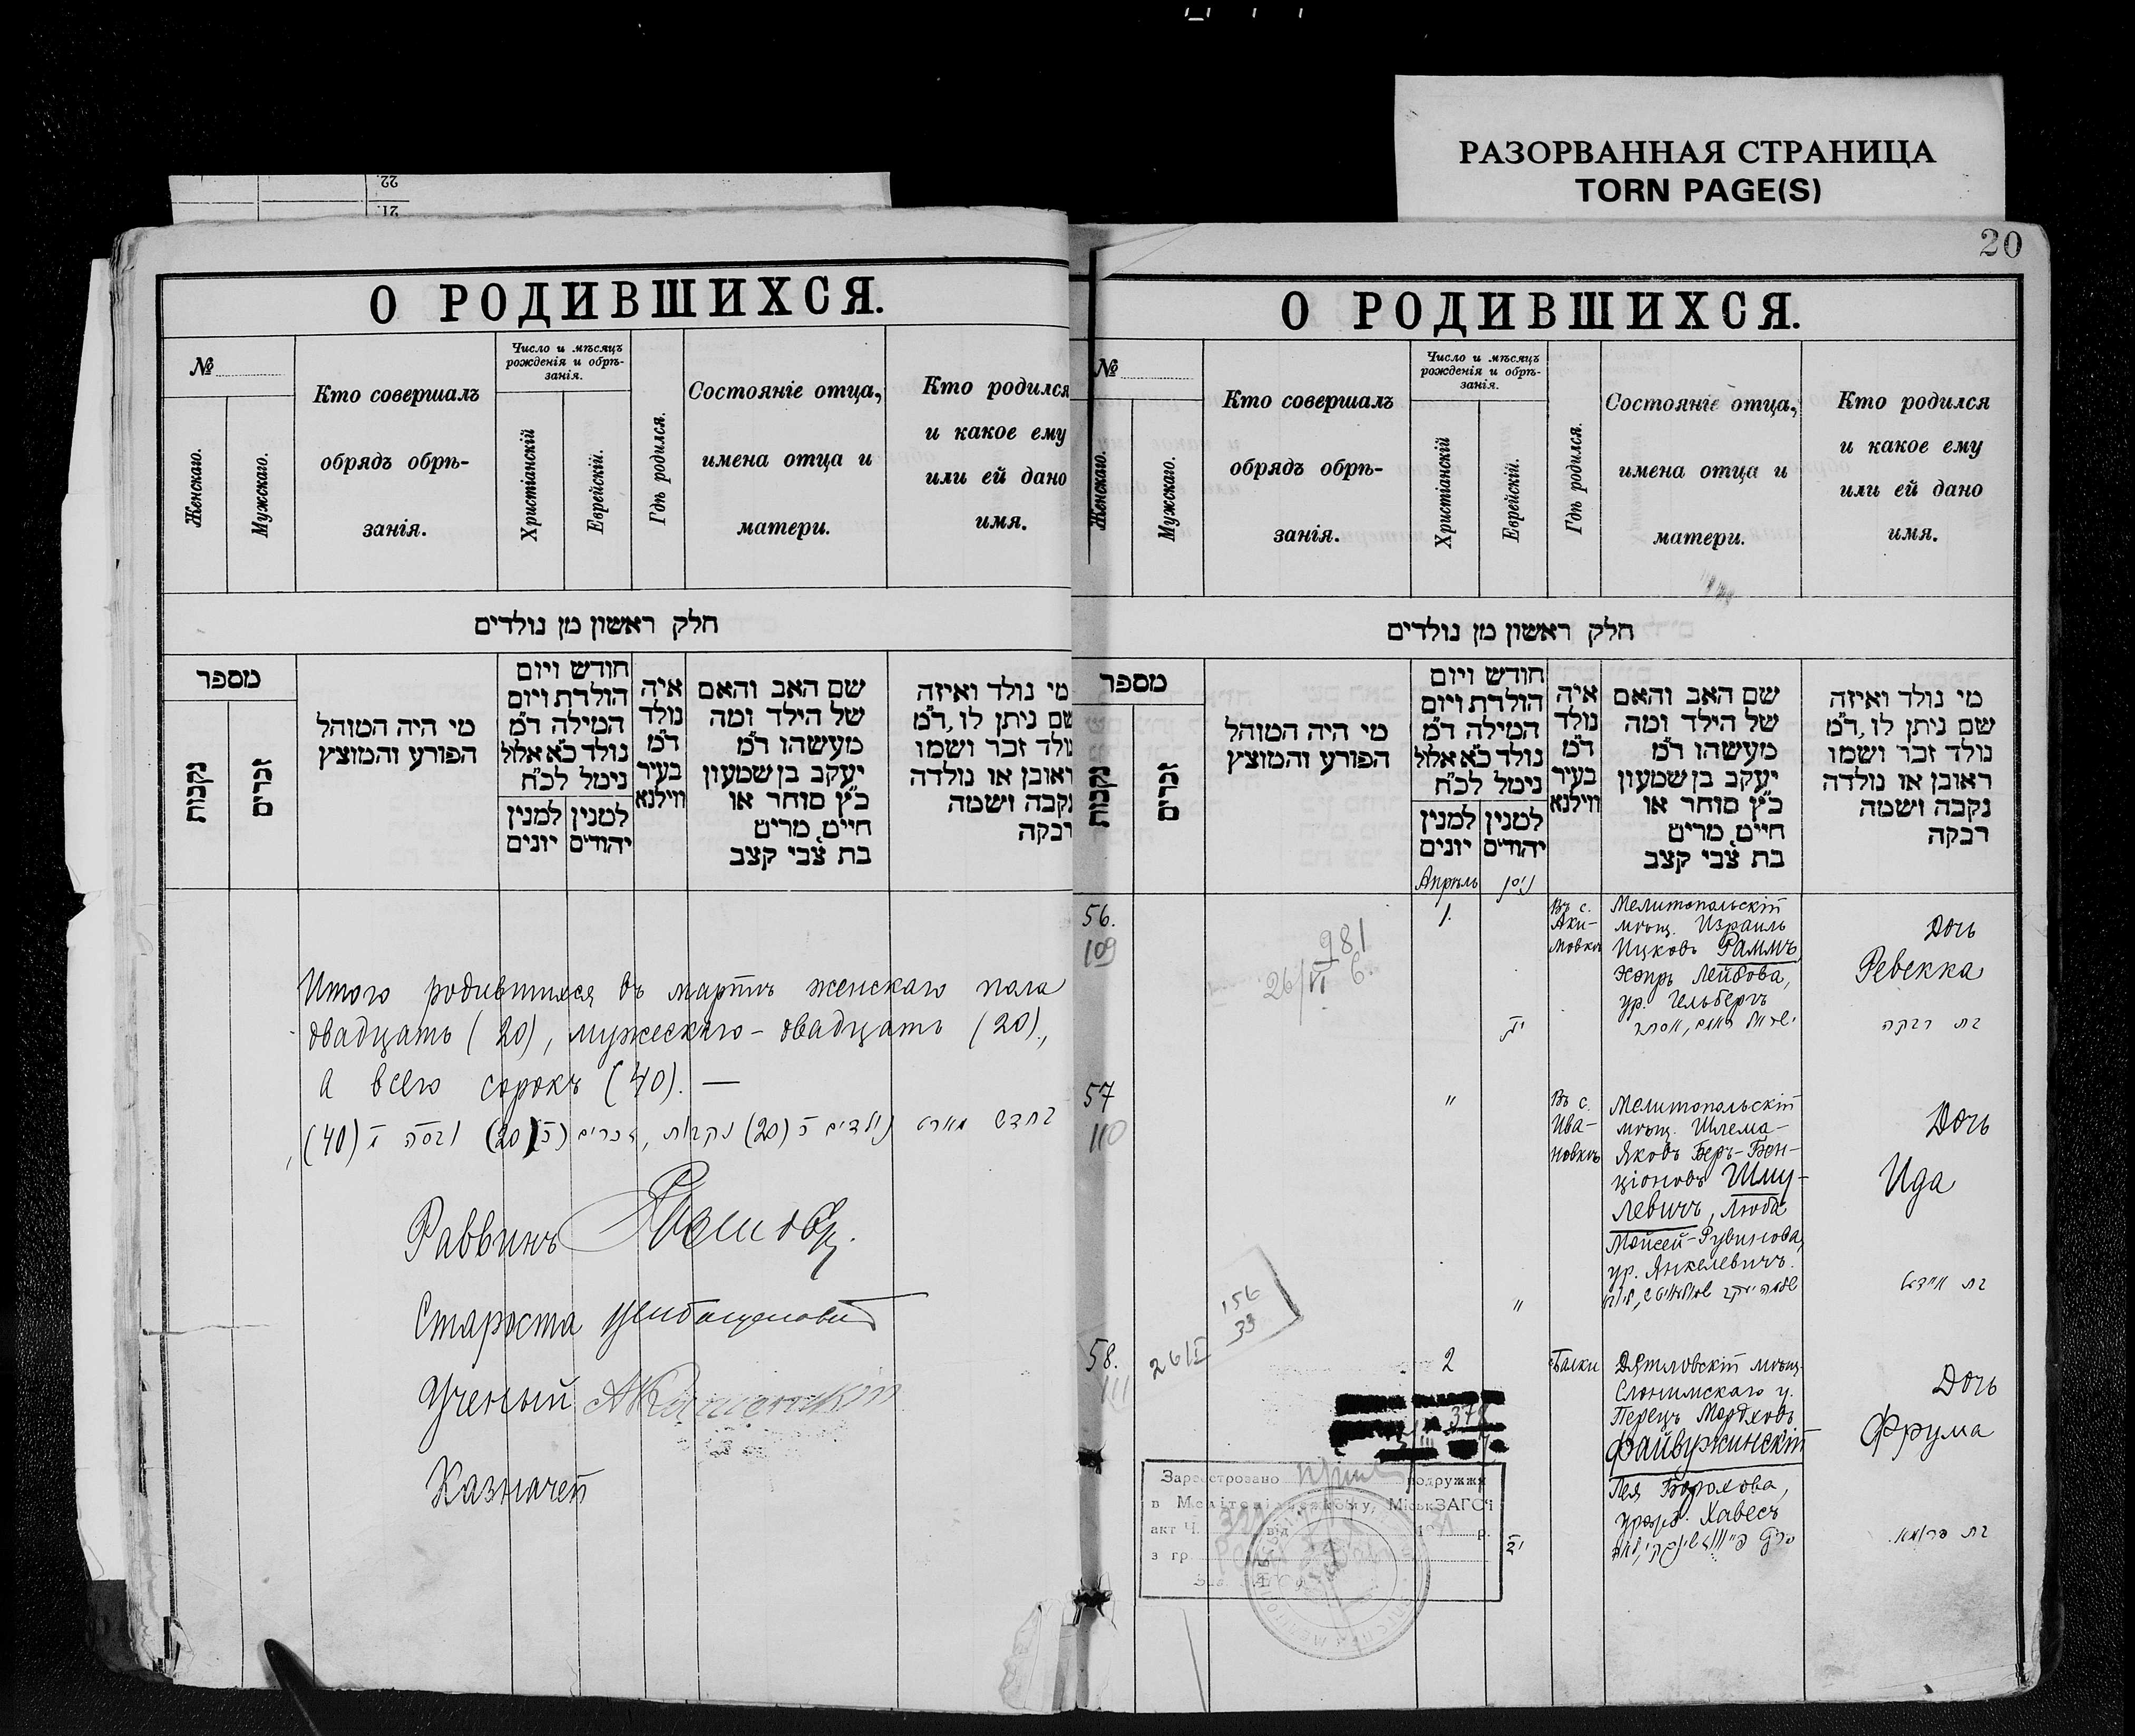 РАЗОРВАННАЯ СТРАНИЦА
TORN PAGE(S)
22.
21.
О РОДИВШИХСЯ.
№
Женскаго.
Мужскаго.
Кто совершалъ
обрядъ обрѣ-
занія.
Число и мѣсяцъ
рожденія и обрѣ-
занія.
Христіанскій
Еврейскій.
Гдѣ родился.
Состояніе отца,
имена отца и
матери.
Кто родился
и какое ему
или ей дано
имя.
חלק ראשון מן נולדים
מספר
נקבות
זכרים
מי היה המוהל
הפורע והמוצץ
חודש ויום
הולדת ויום
המילה ד״מ
נולד כ״א אלול
נימל לכ״ח
למנין יונים
למנין יהודים
איה
נולד
ד״מ
בעיר
ווילנא
שם האב והאם
של הילד ומה
מעשהו ד״מ
יעקב בן שמעון
כ״ץ סוחר או
חיים, מרים
בת צבי קצב
מי נולד ואיזה
שם ניתן לו, ד״מ
נולד זכר ושמו
ראובן או נולדה
נקבה ושמה
רבקה
Итого родившихся въ мартѣ женскаго пола
двадцать (20), мужескаго - двадцать (20),
а всего сорокъ (40). —
Раввинъ
Староста
Ученый
Казначей
20
О РОДИВШИХСЯ.
№
Женскаго.
Мужскаго.
Кто совершалъ
обрядъ обрѣ-
занія.
Число и мѣсяцъ
рожденія и обрѣ-
занія.
Христіанскій
Еврейскій.
Гдѣ родился.
Состояніе отца,
имена отца и
матери.
Кто родился
и какое ему
или ей дано
имя.
חלק ראשון מן נולדים
מספר
נקבות
זכרים
מי היה המוהל
הפורע והמוצץ
חודש ויום
הולדת ויום
המילה ד״מ
נולד כ״א אלול
נימל לכ״ח
למנין יונים
למנין יהודים
איה
נולד
ד״מ
בעיר
ווילנא
שם האב והאם
של הילד ומה
מעשהו ד״מ
יעקב בן שמעון
כ״ץ סוחר או
חיים, מרים
בת צבי קצב
מי נולד ואיזה
שם ניתן לו, ד״מ
נולד זכר ושמו
ראובן או נולדה
נקבה ושמה
רבקה
Апрѣль
ניסן
56.
109
981
26/VI 6.
1.
Въ с.
Аки-
мовкѣ
Мелитопольскій
мѣщ. Израиль
Ицковъ Раммъ,
Эсѳирь Лейбова,
ур. Гельбергъ
Дочь
Ревекка
בת רבקה
57
110
"
"
Въ с.
Ива-
новкѣ
Мелитопольскій
мѣщ. Шлема-
Яковъ Беръ-Бен-
ціоновъ Шму-
левичъ, Люба
Мойсей-Рувинова,
ур. Янкелевичъ.
Дочь
Ида
בת אידא
58.
111
156
33
2
Балки
Дятловскій мѣщ.
Слонимскаго у.
Перецъ Мордховъ
Файвужинскій
Лея Борохова,
урожд. Хавесъ
Дочь
Фрума
בת פרומא
378
Зареєстровано подружжя
в Мелітопільському МіськЗАГСі
акт Ч. від р.
з гр.